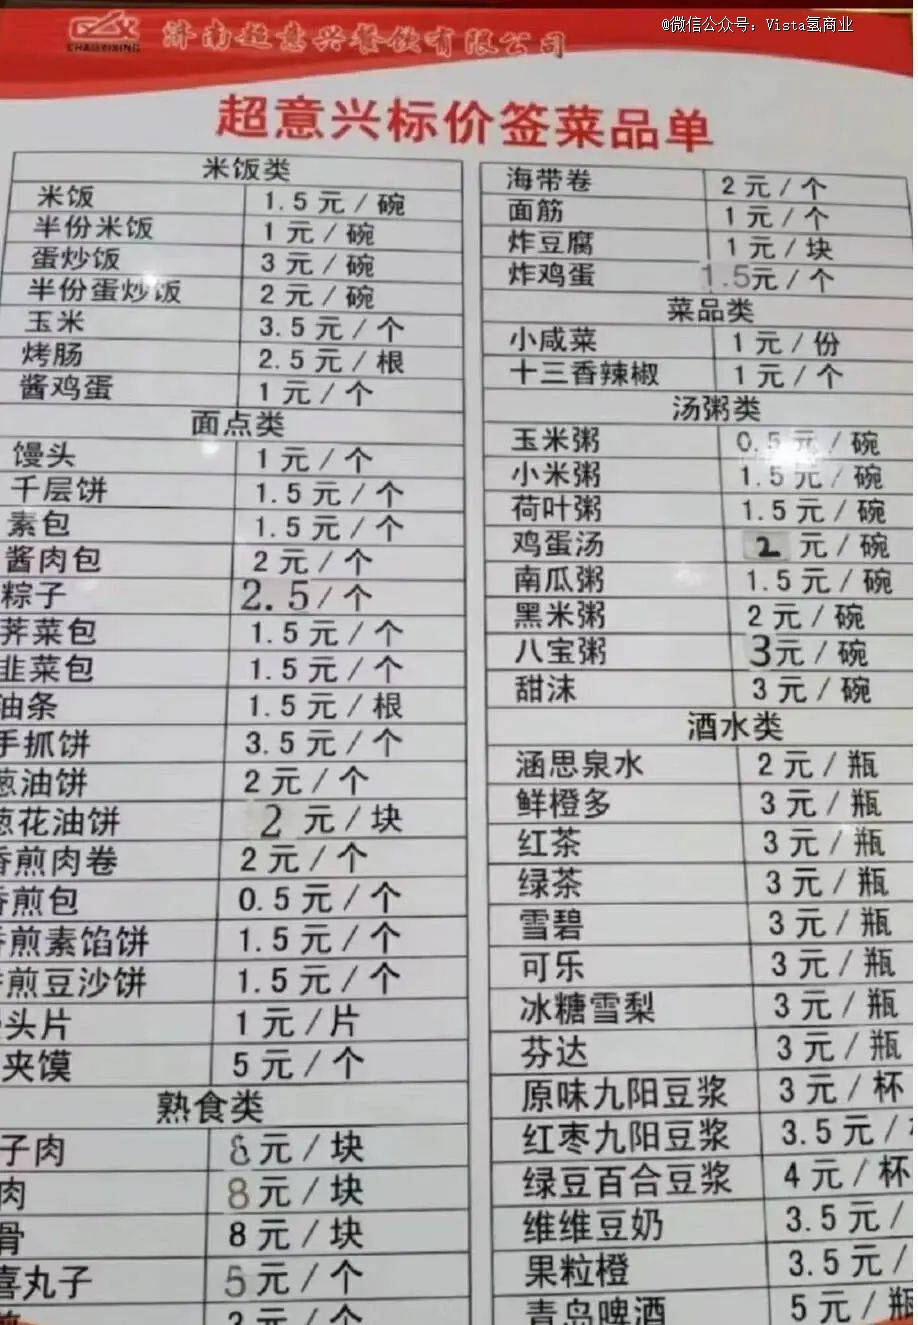 @微信公众号：Vista氢商业
CHAOYIXING 济南超意兴餐饮有限公司
超意兴标价签菜品单
米饭类
米饭 1.5元/碗
半份米饭 1元/碗
蛋炒饭 3元/碗
半份蛋炒饭 2元/碗
玉米 3.5元/个
烤肠 2.5元/根
酱鸡蛋 1元/个
面点类
馒头 1元/个
千层饼 1.5元/个
素包 1.5元/个
酱肉包 2元/个
粽子 2.5/个
荠菜包 1.5元/个
韭菜包 1.5元/个
油条 1.5元/根
手抓饼 3.5元/个
葱油饼 2元/个
葱花油饼 2元/块
香煎肉卷 2元/个
香煎包 0.5元/个
香煎素馅饼 1.5元/个
香煎豆沙饼 1.5元/个
头片 1元/片
夹馍 5元/个
熟食类
子肉 8元/块
肉 8元/块
骨 8元/块
喜丸子 5元/个
2元/个
海带卷 2元/个
面筋 1元/个
炸豆腐 1元/块
炸鸡蛋 1.5元/个
菜品类
小咸菜 1元/份
十三香辣椒 1元/个
汤粥类
玉米粥 0.5元/碗
小米粥 1.5元/碗
荷叶粥 1.5元/碗
鸡蛋汤 2元/碗
南瓜粥 1.5元/碗
黑米粥 2元/碗
八宝粥 3元/碗
甜沫 3元/碗
酒水类
涵思泉水 2元/瓶
鲜橙多 3元/瓶
红茶 3元/瓶
绿茶 3元/瓶
雪碧 3元/瓶
可乐 3元/瓶
冰糖雪梨 3元/瓶
芬达 3元/瓶
原味九阳豆浆 3元/杯
红枣九阳豆浆 3.5元/
绿豆百合豆浆 4元/杯
维维豆奶 3.5元/
果粒橙 3.5元/
青岛啤酒 5元/瓶